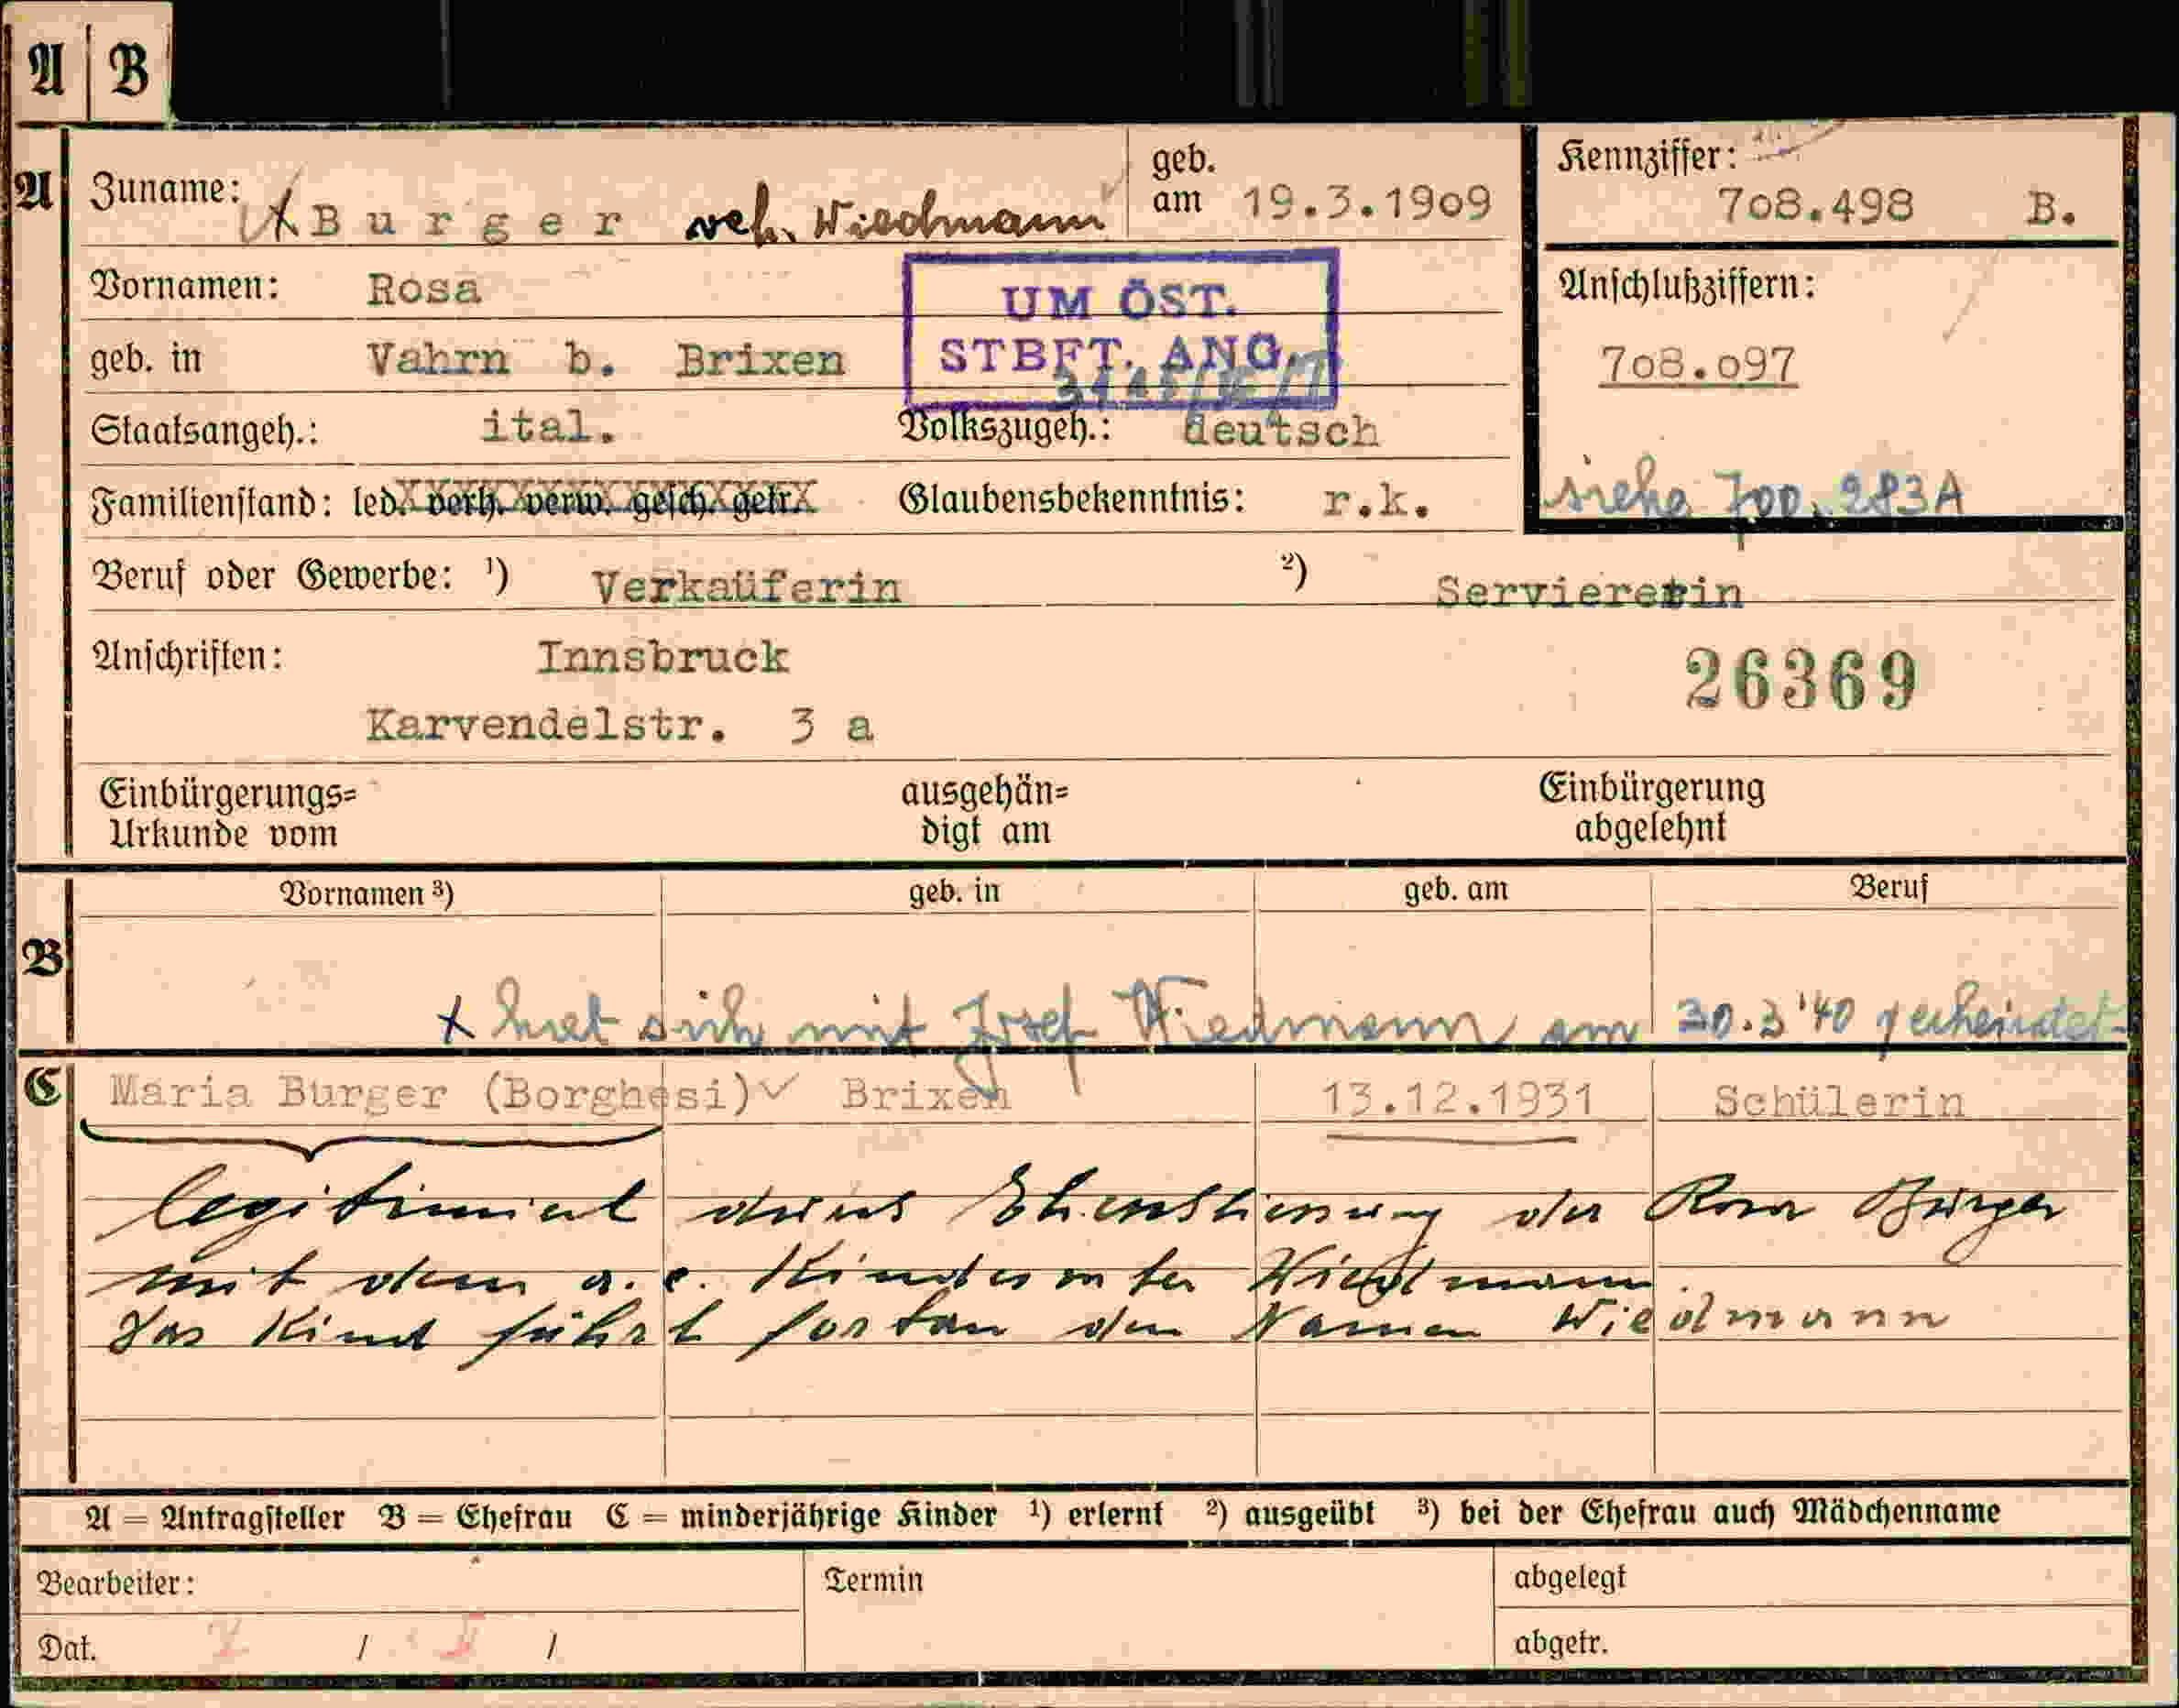 A B
A Zuname: Burger veh. Wiedmann geb. am 19.3.1909
Kennziffer: 708.498 B.
Vornamen: Rosa
UM ÖST. STBFT. ANG.
Anschlußziffern:
708.097
siehe 700.283A
geb. in Vahrn b. Brixen
Staatsangeh.: ital. Volkszugeh.: deutsch
Familienstand: led. verh. verw. gesch. getr. Glaubensbekenntnis: r.k.
Beruf oder Gewerbe: ¹) Verkaüferin ²) Serviererin
Anschriften: Innsbruck
26369
Karvendelstr. 3 a
Einbürgerungs= Urkunde vom ausgehän= digt am Einbürgerung abgelehnt
Vornamen ³) geb. in geb. am Beruf
B
x hat sich mit Josef Wiedmann am 30.3'40 verheiratet
C Maria Burger (Borghesi) Brixen 13.12.1931 Schülerin
legitimiert durch Eheschliessung der Rosa Burger
mit dem a. e. Kindesvater Wiedmann.
Das Kind führt fortan den Namen Wiedmann
A = Antragsteller B = Ehefrau C = minderjährige Kinder ¹) erlernt ²) ausgeübt ³) bei der Ehefrau auch Mädchenname
Bearbeiter: Termin abgelegt
Dat. / / abgetr.